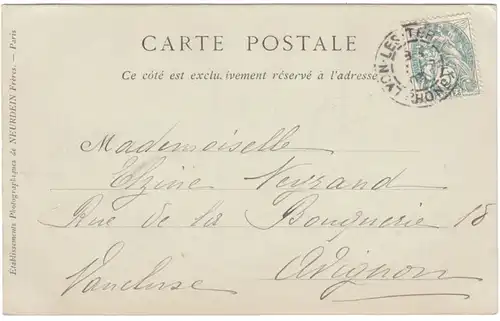 CARTE POSTALE
Ce côté est exclu. ivement réservé à l'adresse
Mademoiselle
Elzine Neyrand
Rue de la Bouquerie 18
Vaucluse Avignon
Etablissements Photographiques de NEURDEIN Frères. — Paris
LYON-LES-TER
RHONE